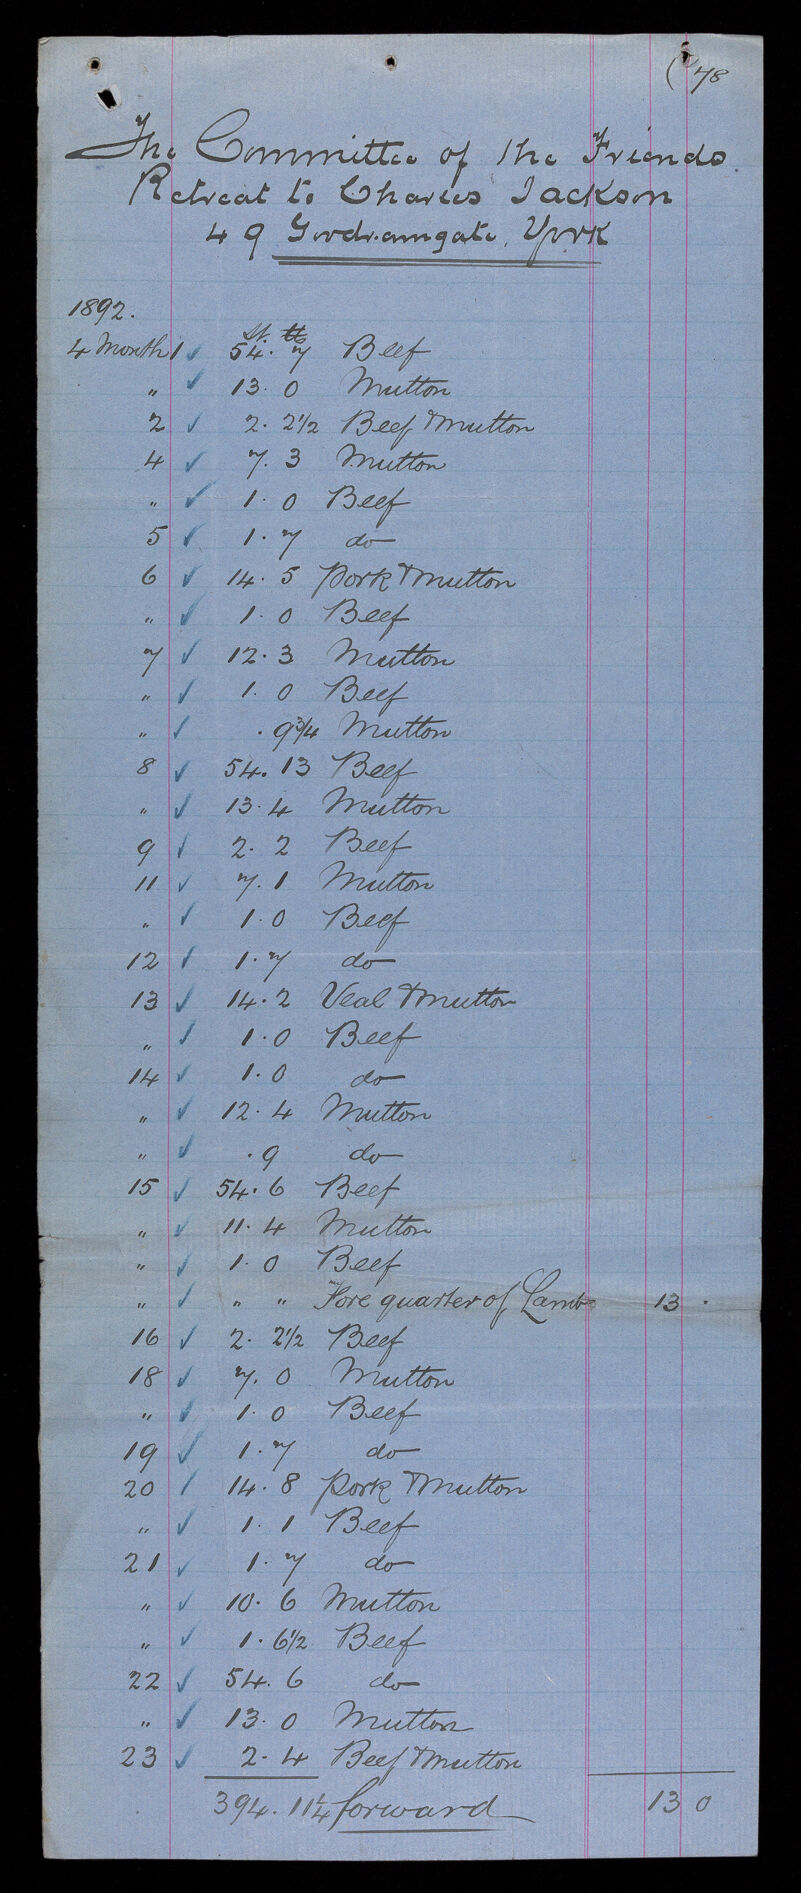 ( 78
The Committee of the Friends
Retreat to Charles Jackson
49 Goodramgate, York
1892.
st. lb
4 Month 1 ✓ 54. 7 Beef
„ ✓ 13. 0 Mutton
2 ✓ 2. 2½ Beef & Mutton
4 ✓ 7. 3 Mutton
„ ✓ 1. 0 Beef
5 ✓ 1. 7 do
6 ✓ 14. 5 Pork & Mutton
„ ✓ 1. 0 Beef
7 ✓ 12. 3 Mutton
„ ✓ 1. 0 Beef
„ ✓ . 9¾ Mutton
8 ✓ 54. 13 Beef
„ ✓ 13. 4 Mutton
9 ✓ 2. 2 Beef
11 ✓ 7. 1 Mutton
„ ✓ 1. 0 Beef
12 ✓ 1. 7 do
13 ✓ 14. 2 Veal & Mutton
„ ✓ 1. 0 Beef
14 ✓ 1. 0 do
„ ✓ 12. 4 Mutton
„ ✓ . 9 do
15 ✓ 54. 6 Beef
„ ✓ 11. 4 Mutton
„ ✓ 1. 0 Beef
„ ✓ „ „ Fore quarter of Lamb 13 .
16 ✓ 2. 2½ Beef
18 ✓ 7. 0 Mutton
„ ✓ 1. 0 Beef
19 ✓ 1. 7 do
20 ✓ 14. 8 Pork & Mutton
„ ✓ 1. 1 Beef
21 ✓ 1. 7 do
„ ✓ 10. 6 Mutton
„ ✓ 1. 6½ Beef
22 ✓ 54. 6 do
„ ✓ 13. 0 Mutton
23 ✓ 2. 4 Beef & Mutton
394. 11¼ forward 13 0